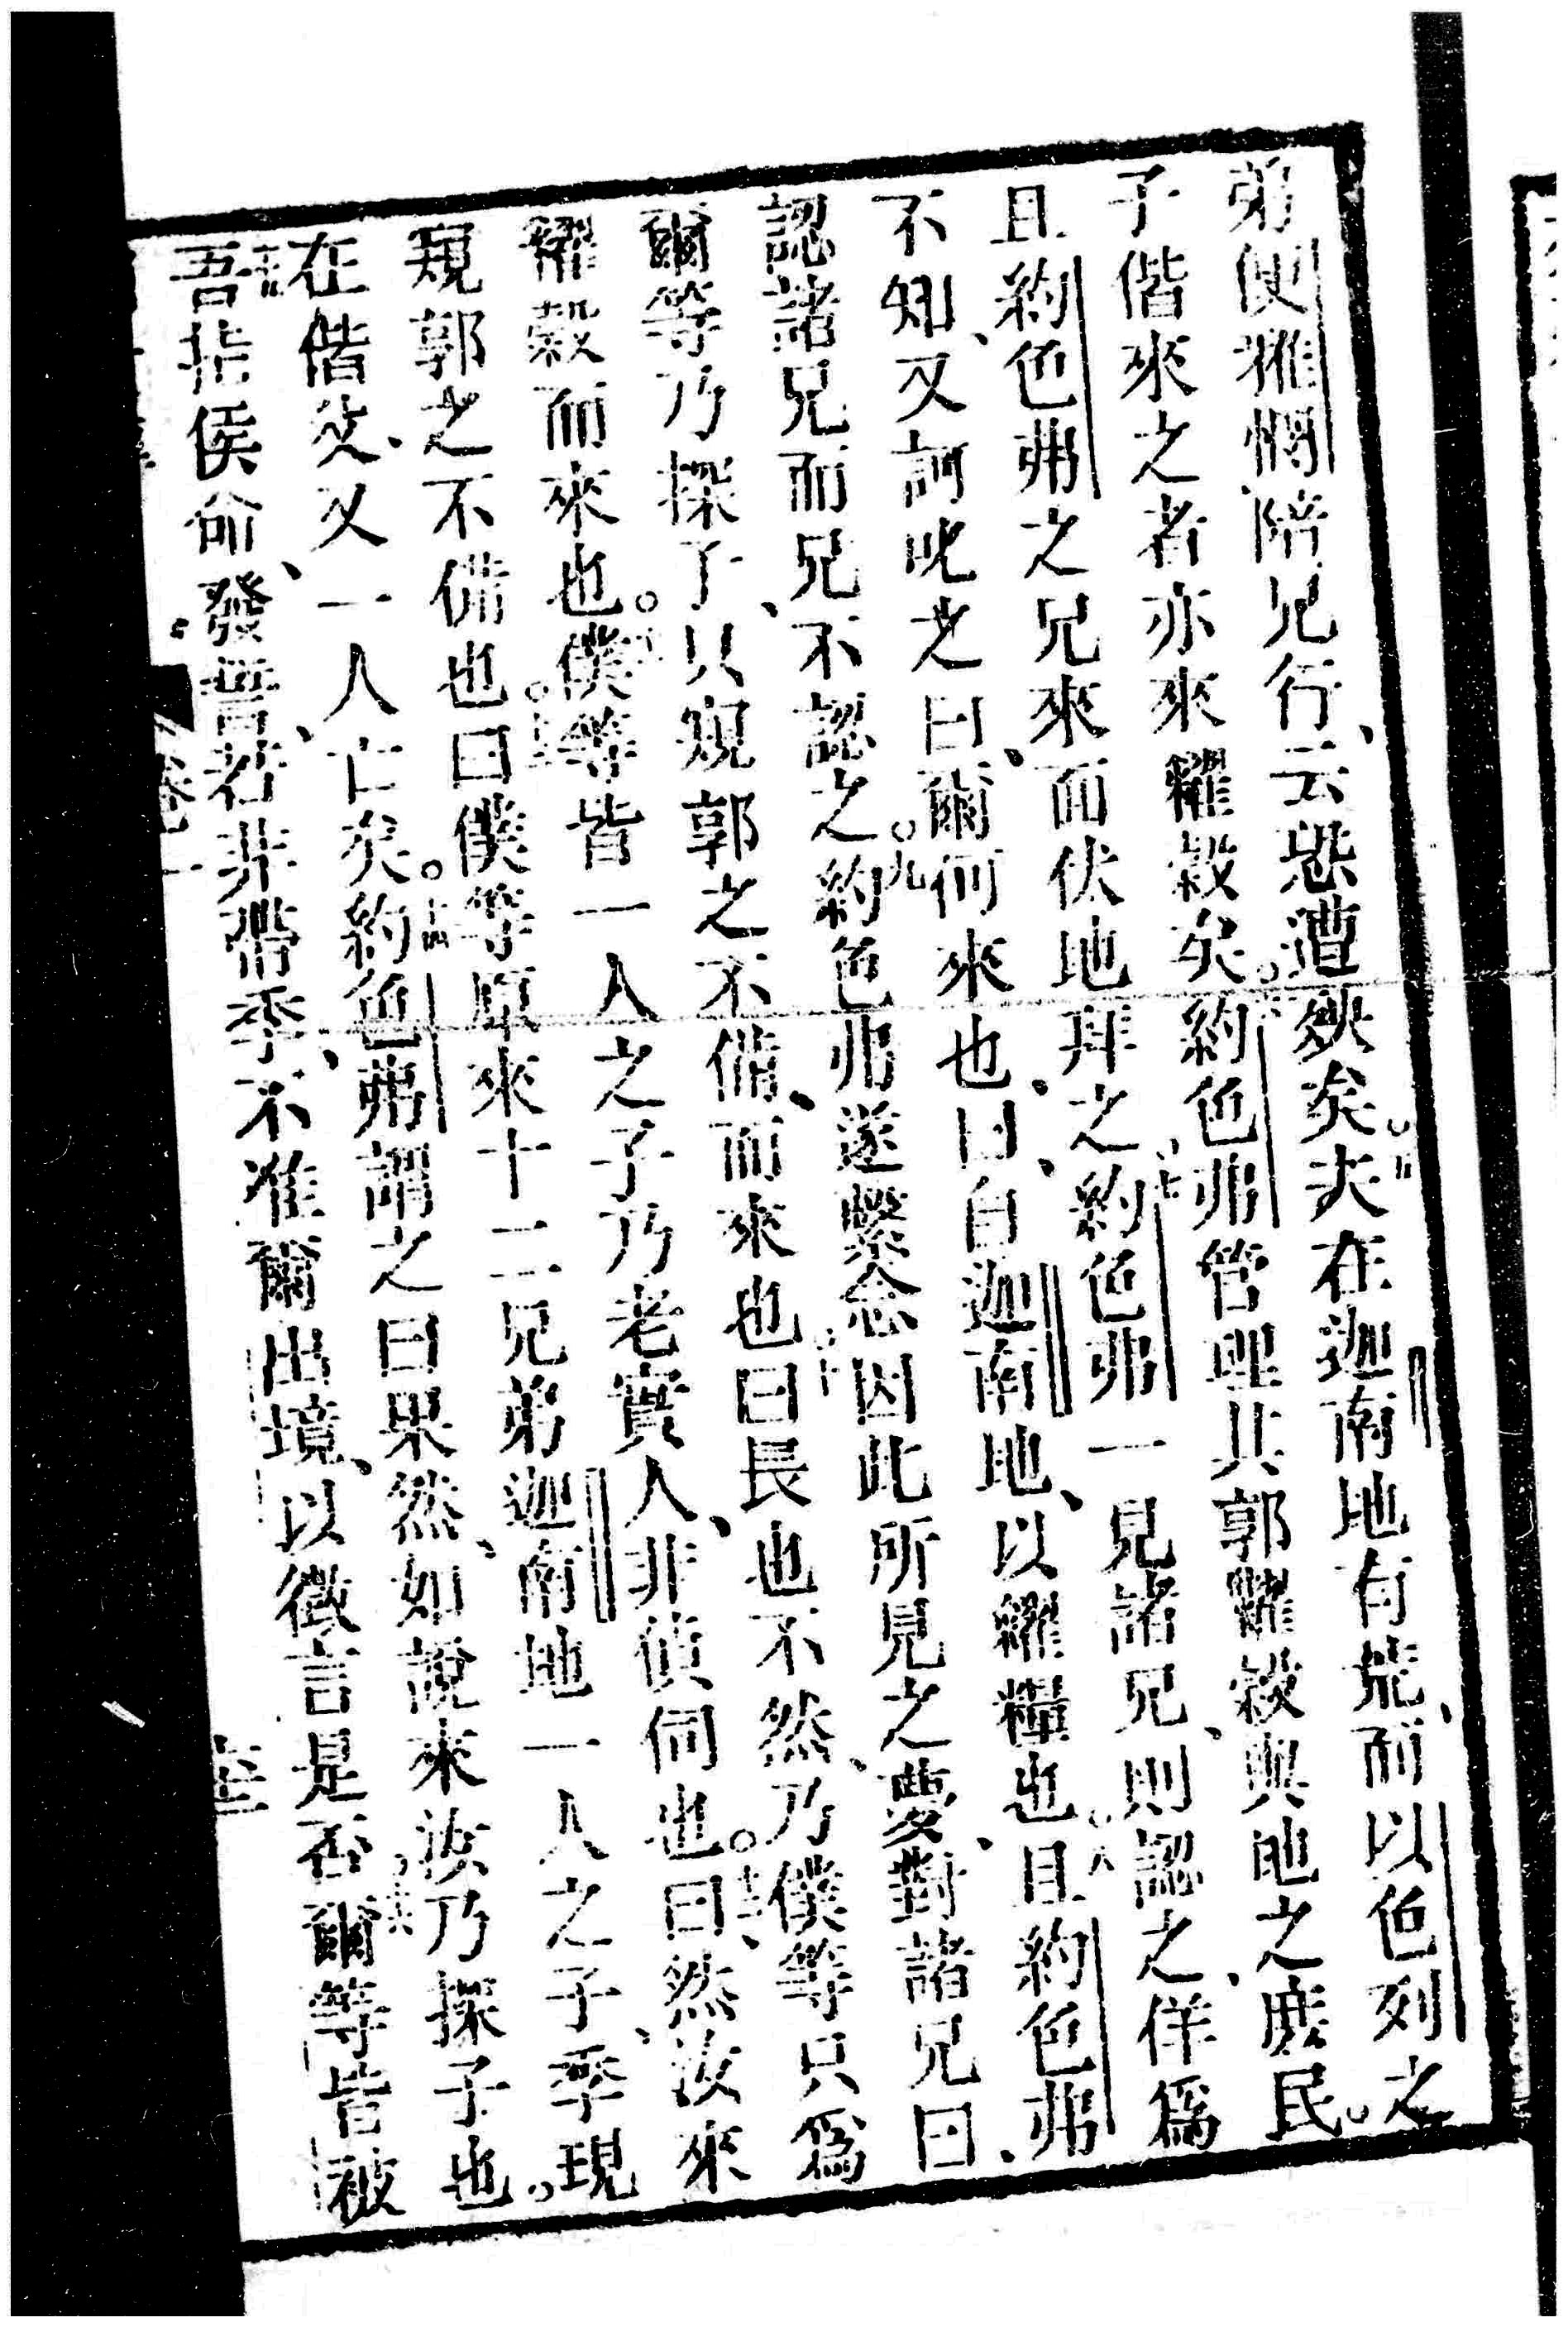 弟便雅憫、陪兄行、云恐遭殃矣。五夫在迦南地有荒、而以色列之
子偕來之者亦來糴穀矣。約色弗管理其郭糶穀與地之庶民。
且約色弗之兄來而伏地拜之、七約色弗一見諸兄、則認之、佯爲
不知、又訶叱之曰、爾何來也、曰、自迦南地、以糴糧也。八且約色弗
認諸兄而兄不認之。九約色弗遂繫念因此所見之夢、對諸兄曰、
爾等乃探子、只窺郭之不備、而來也。十曰長也不然、乃僕等只爲
糴穀而來也。僕等皆一人之子乃老實人、非偵伺也。十二曰然汝來
窺郭之不備也。曰僕等原來十二兄弟迦南地一人之子、季現
在偕父、又一人亡矣。十四約色弗謂之曰果然、如說來汝乃探子也。
吾指侯命、發誓、若非帶季、不准爾出境、以徵言是否。十六爾等皆被
卷一